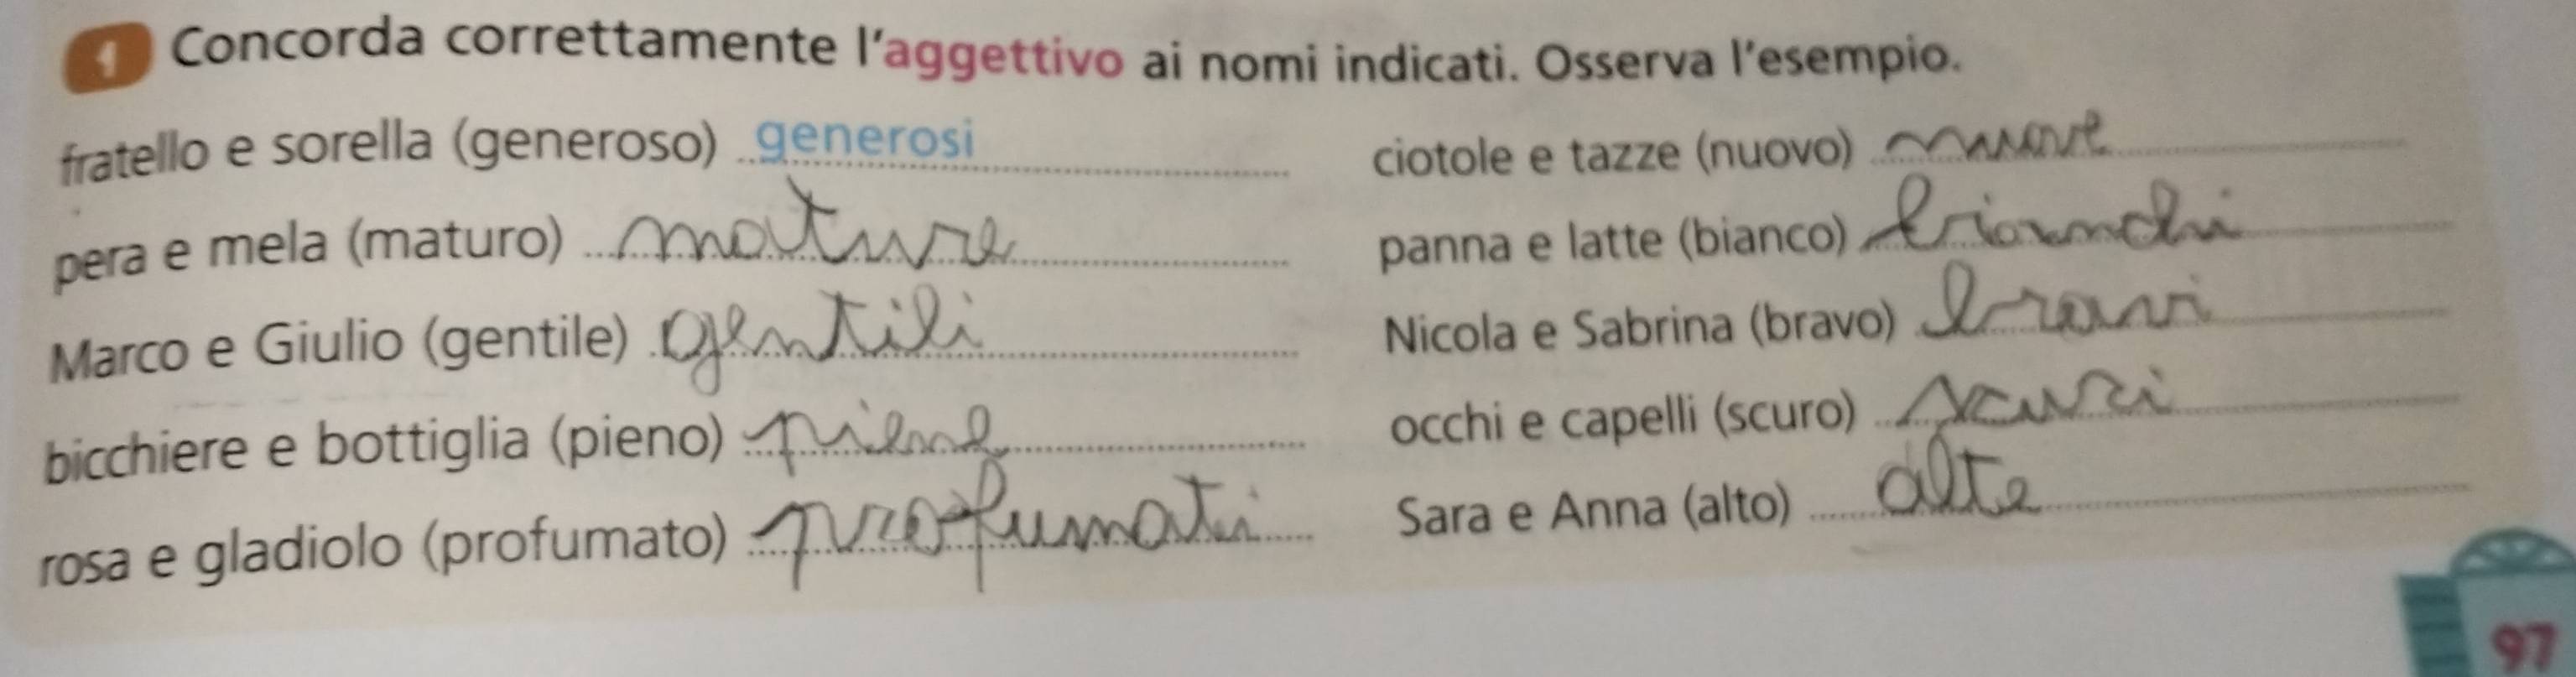 1 Concorda correttamente l'aggettivo ai nomi indicati. Osserva l'esempio.
fratello e sorella (generoso) generosi
pera e mela (maturo) mature
Marco e Giulio (gentile) gentili
bicchiere e bottiglia (pieno) piene
rosa e gladiolo (profumato) profumati
ciotole e tazze (nuovo) nuove
panna e latte (bianco) bianchi
Nicola e Sabrina (bravo) bravi
occhi e capelli (scuro) scuri
Sara e Anna (alto) alte
97